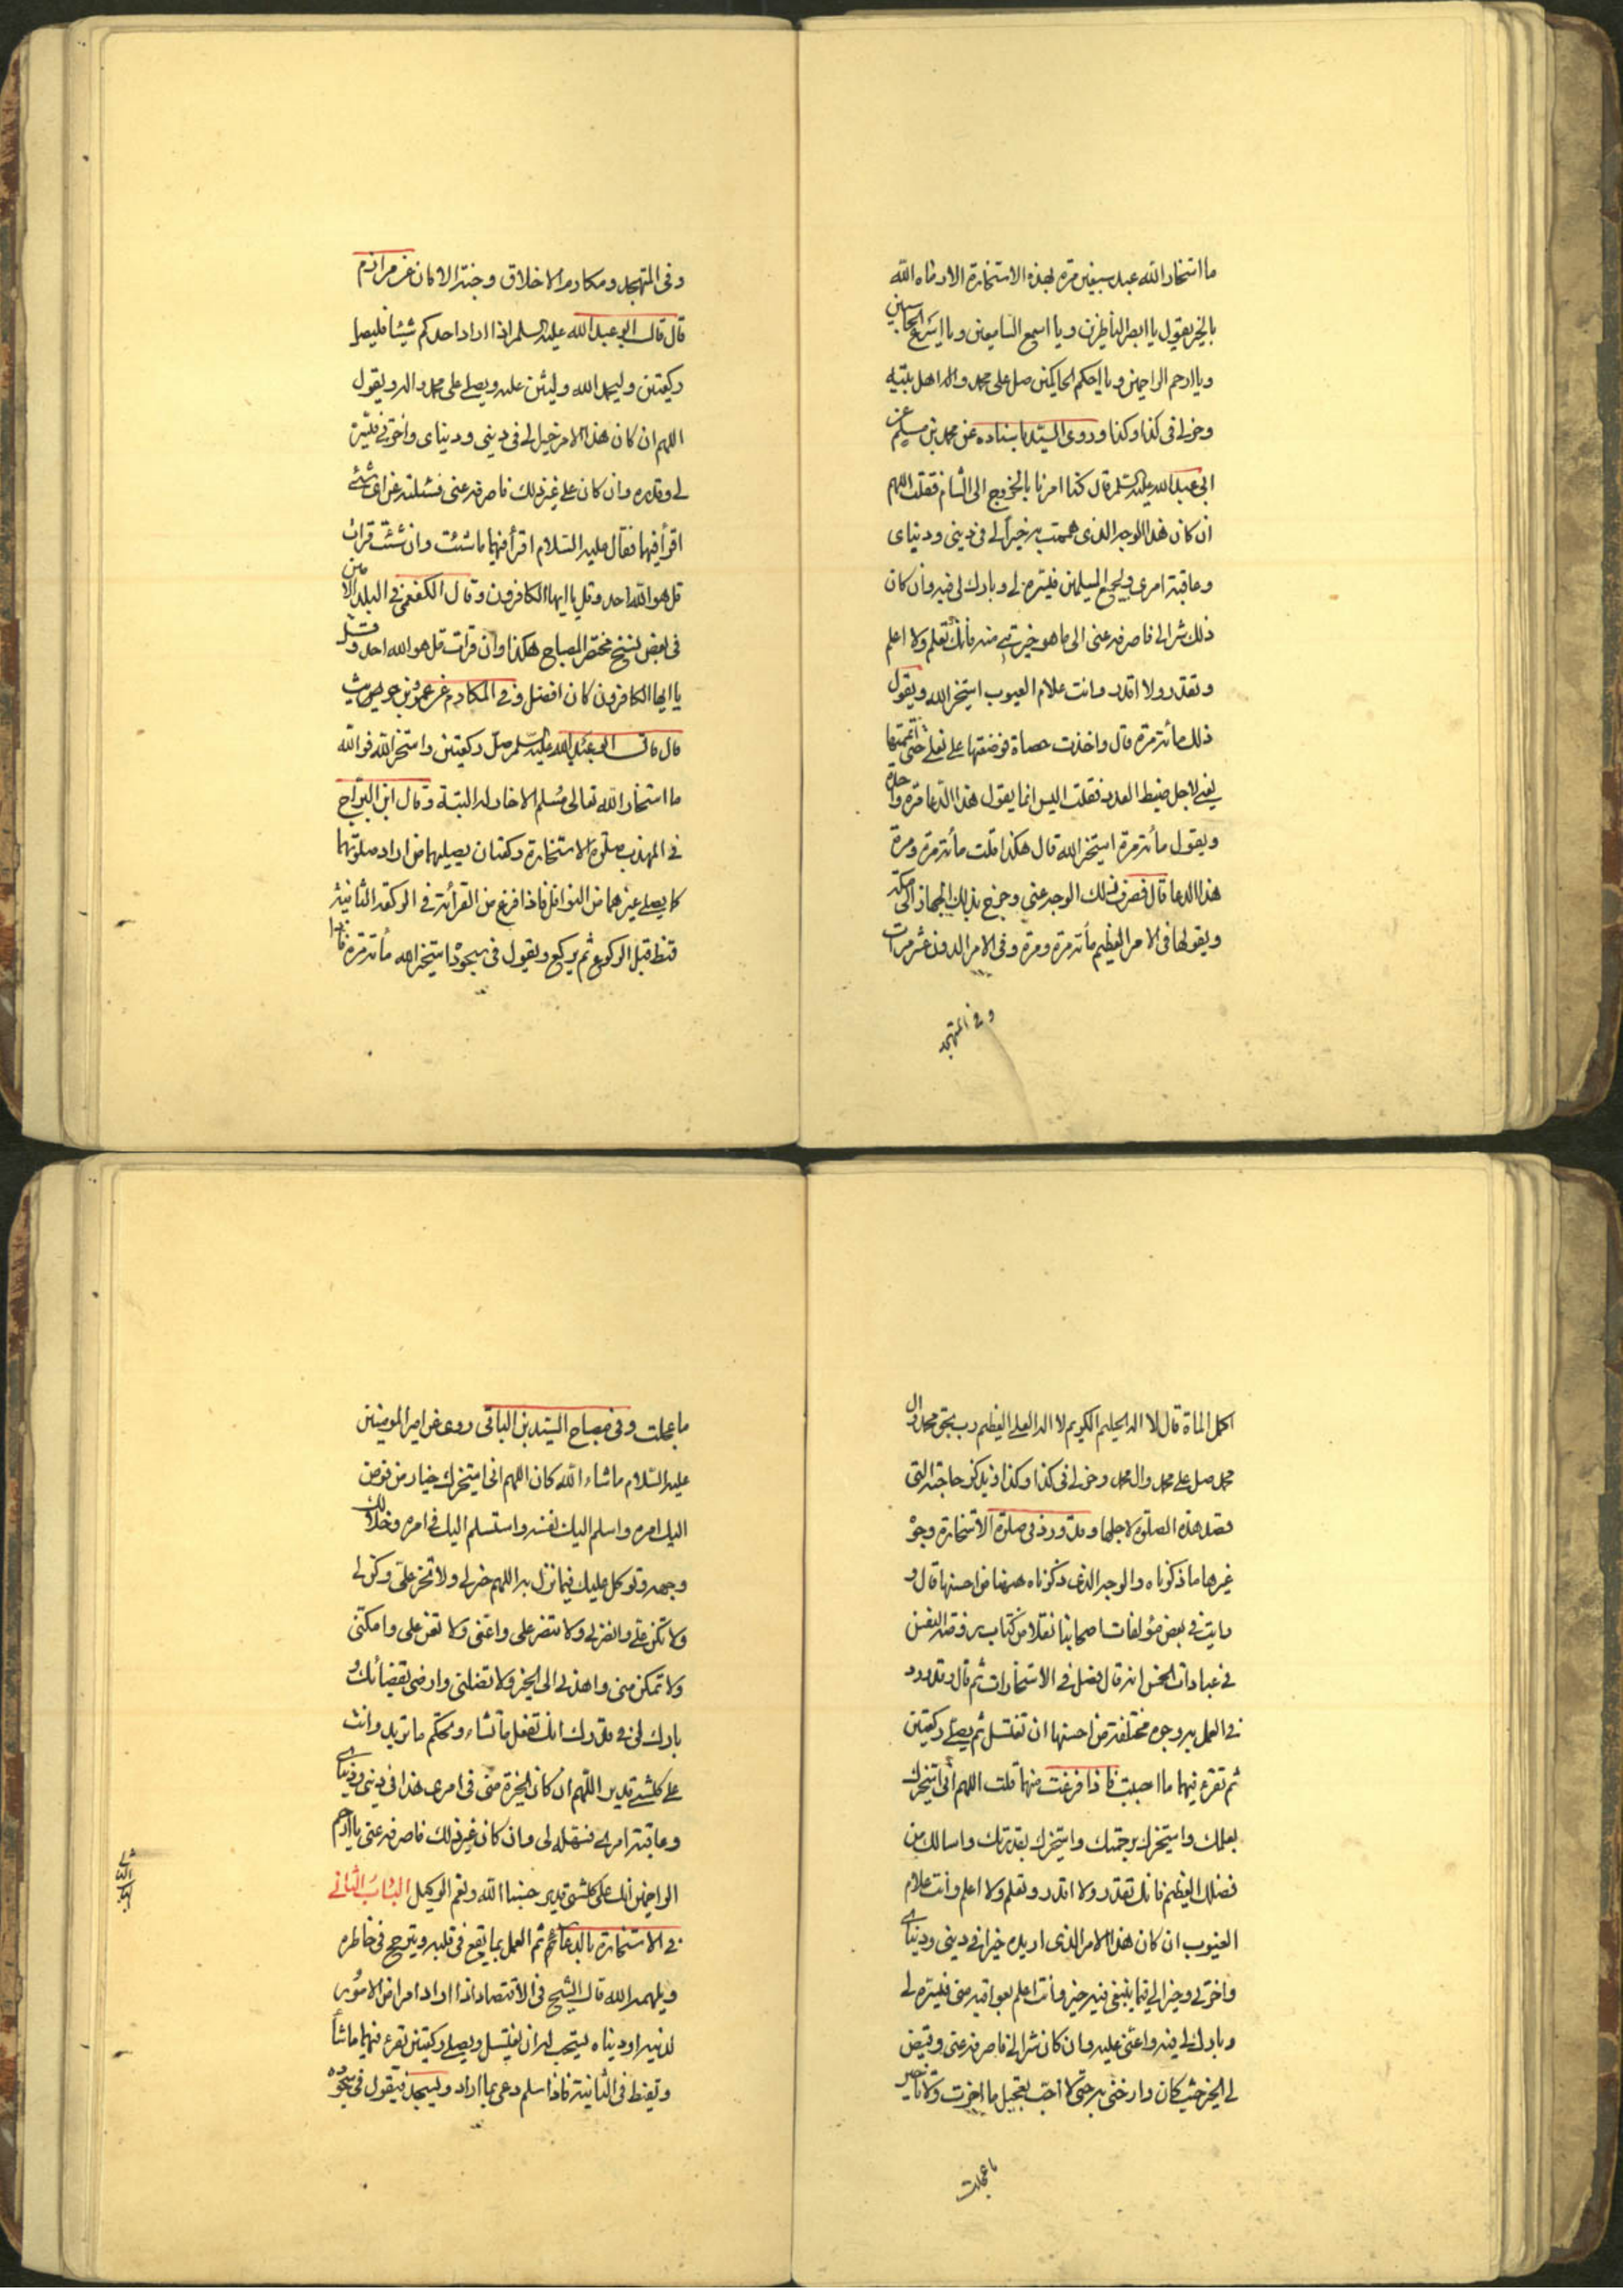 ما استخار الله عبد سبعين مرة بهذه الاستخارة الا رماه الله
بالخير يقول يا ابصر الناظرين ويا اسمع السامعين ويا اسرع الحاسبين
ويا ارحم الراحمين ويا احكم الحاكمين صل على محمد واله اهل بيته
وخر لى فى كذا وكذا وروى السيد باسناده عن محمد بن مسلم عن
ابى عبد الله عليه السلم قال كنا امرنا بالخروج الى الشام فقلت اللهم
ان كان هذا الوجه الذى هممت به خيرا لى فى دينى ودنياى
وعاقبة امرى ولجميع المسلمين فيسره لى وبارك لى فيه وان كان
ذلك شرا لى فاصرفه عنى الى ما هو خير لى منه فانك تعلم ولا اعلم
وتقدر ولا اقدر وانت علام الغيوب استخير الله ويقول
ذلك مائة مرة قال واخذت حصاة فوضعتها على نعلى حتى اتممتها
يعنى لاجل ضبط العدد فقلت اليس انما يقول هذا الدعا مرة واحدة
ويقول مائة مرة استخير الله قال هكذا قلت مائة مرة ومرة
هذا الدعا قال فصرف ذلك الوجه عنى وخرج بذلك الجهاز الى مكة
ويقولها فى الامر العظيم مائة مرة ومرة وفى الامر الدون عشر مرات
وفى المتهجد
وفى المتهجد ومكارم الاخلاق وجنة الامان عن مرازم
قال قال ابو عبد الله عليه السلم اذا اراد احدكم شيئا فليصل
ركعتين وليحمد الله وليثن عليه ويصلى على محمد واله ويقول
اللهم ان كان هذا الامر خيرا لى فى دينى ودنياى واخرتى فيسره
لى وقدره وان كان على غير ذلك فاصرفه عنى فسئلته عن اى شئ
اقرأ فيها فقال عليه السلام اقرأ فيهما ما شئت وان شئت قرات
قل هو الله احد وقل يا ايها الكافرون وقال الكفعمى فى البلد الامين
فى بعض نسخ مختصر المصباح هكذا وان قرات قل هو الله احد وقل
يا ايها الكافرون كان افضل وفى المكارم عن عمرو بن حريث
قال قال ابو عبد الله عليه السلم صل ركعتين واستخر الله فوالله
ما استخار الله تعالى مسلم الا خار له البتة وقال ابن البراج
فى المهذب صلوة الاستخارة ركعتان يصليهما من اراد صلوتهما
كما يصلى غيرهما من النوافل فاذا فرغ من القرأة فى الركعة الثانية
قنط قبل الركوع ثم يركع ويقول فى سجوده استخير الله مائة مرة فاذا
اكمل الماة قال لا اله الحليم الكريم لا اله العلى العظيم رب بحق محمد وال
محمد صل على محمد وال محمد وخر لى فى كذا وكذا ويذكر حاجته التى
قصد هذه الصلوة لاجلها وقد ورد فى صلوة الاستخارة وجوه
غيرها ما ذكرناه والوجه الذى ذكرناه ههنا من احسنها قال و
رايت فى بعض مؤلفات اصحابنا نقلا من كتاب روضة النفس
فى عبادات الخمس انه قال فصل فى الاستخارات ثم قال وقد ورد
فى العمل به وجوه مختلفة من احسنها ان تغتسل ثم يصلى ركعتين
ثم تقرء فيهما ما احببت فاذا فرغت منها قلت اللهم انى استخيرك
بعلمك واستخيرك برحمتك واستخيرك بقدرتك واسالك من
فضلك العظيم فانك تقدر ولا اقدر وتعلم ولا اعلم وانت علام
الغيوب ان كان هذا الامر الذى اريده خيرا فى دينى ودنياى
واخرتى وخيرا لى فيما ينبغى فيه خير وانت اعلم بعواقبه منى فيسره لى
وبارك لى فيه واعنى عليه وان كان شرا لى فاصرفه عنى وقيض
لى الخير حيث كان وارضنى به حتى لا احب تعجيل ما اخرت ولا تاخير
ما عجلت
ما عجلت وفى مصباح السيد بن الباقى روى عن امير المومنين
عليه السلام ما شاء الله كان اللهم انى استخيرك خيار من فوض
اليك امره واسلم اليك نفسه واستسلم اليك فى امره وخلا لك
وجهه وتوكل عليك فيما نزل به اللهم خر لى ولا تخر على وكن لى
ولا تكن على وانصرنى ولا تنصر على واعنى ولا تعن على وامكنى
ولا تمكن منى واهدنى الى الخير ولا تضلنى وارضنى بقضائك و
بارك لى فى قدرك انك تفعل ما تشاء وتحكم ما تريد وانت
على كلشئ قدير اللهم ان كان الخيرة منى فى امرى هذا فى دينى ودنياى
وعاقبة امرى فسهله لى وان كان غير ذلك فاصرفه عنى يا ارحم
الراحمين انك على كلشئ قدير حسبنا الله ونعم الوكيل الباب الثانى
فى الاستخارة بالدعا ثم العمل بما يقع فى قلبه ويترجح فى خاطره
ويلهمه الله قال الشيخ فى الاقتصاد اذا اراد امرا من الامور
لدنيه او دنياه يستحب له ان يغتسل ويصلى ركعتين تقرء فيهما ما شأ
وتقنط فى الثانية فاذا سلم دعى بما اراد وليسجد فيقول فى سجوده